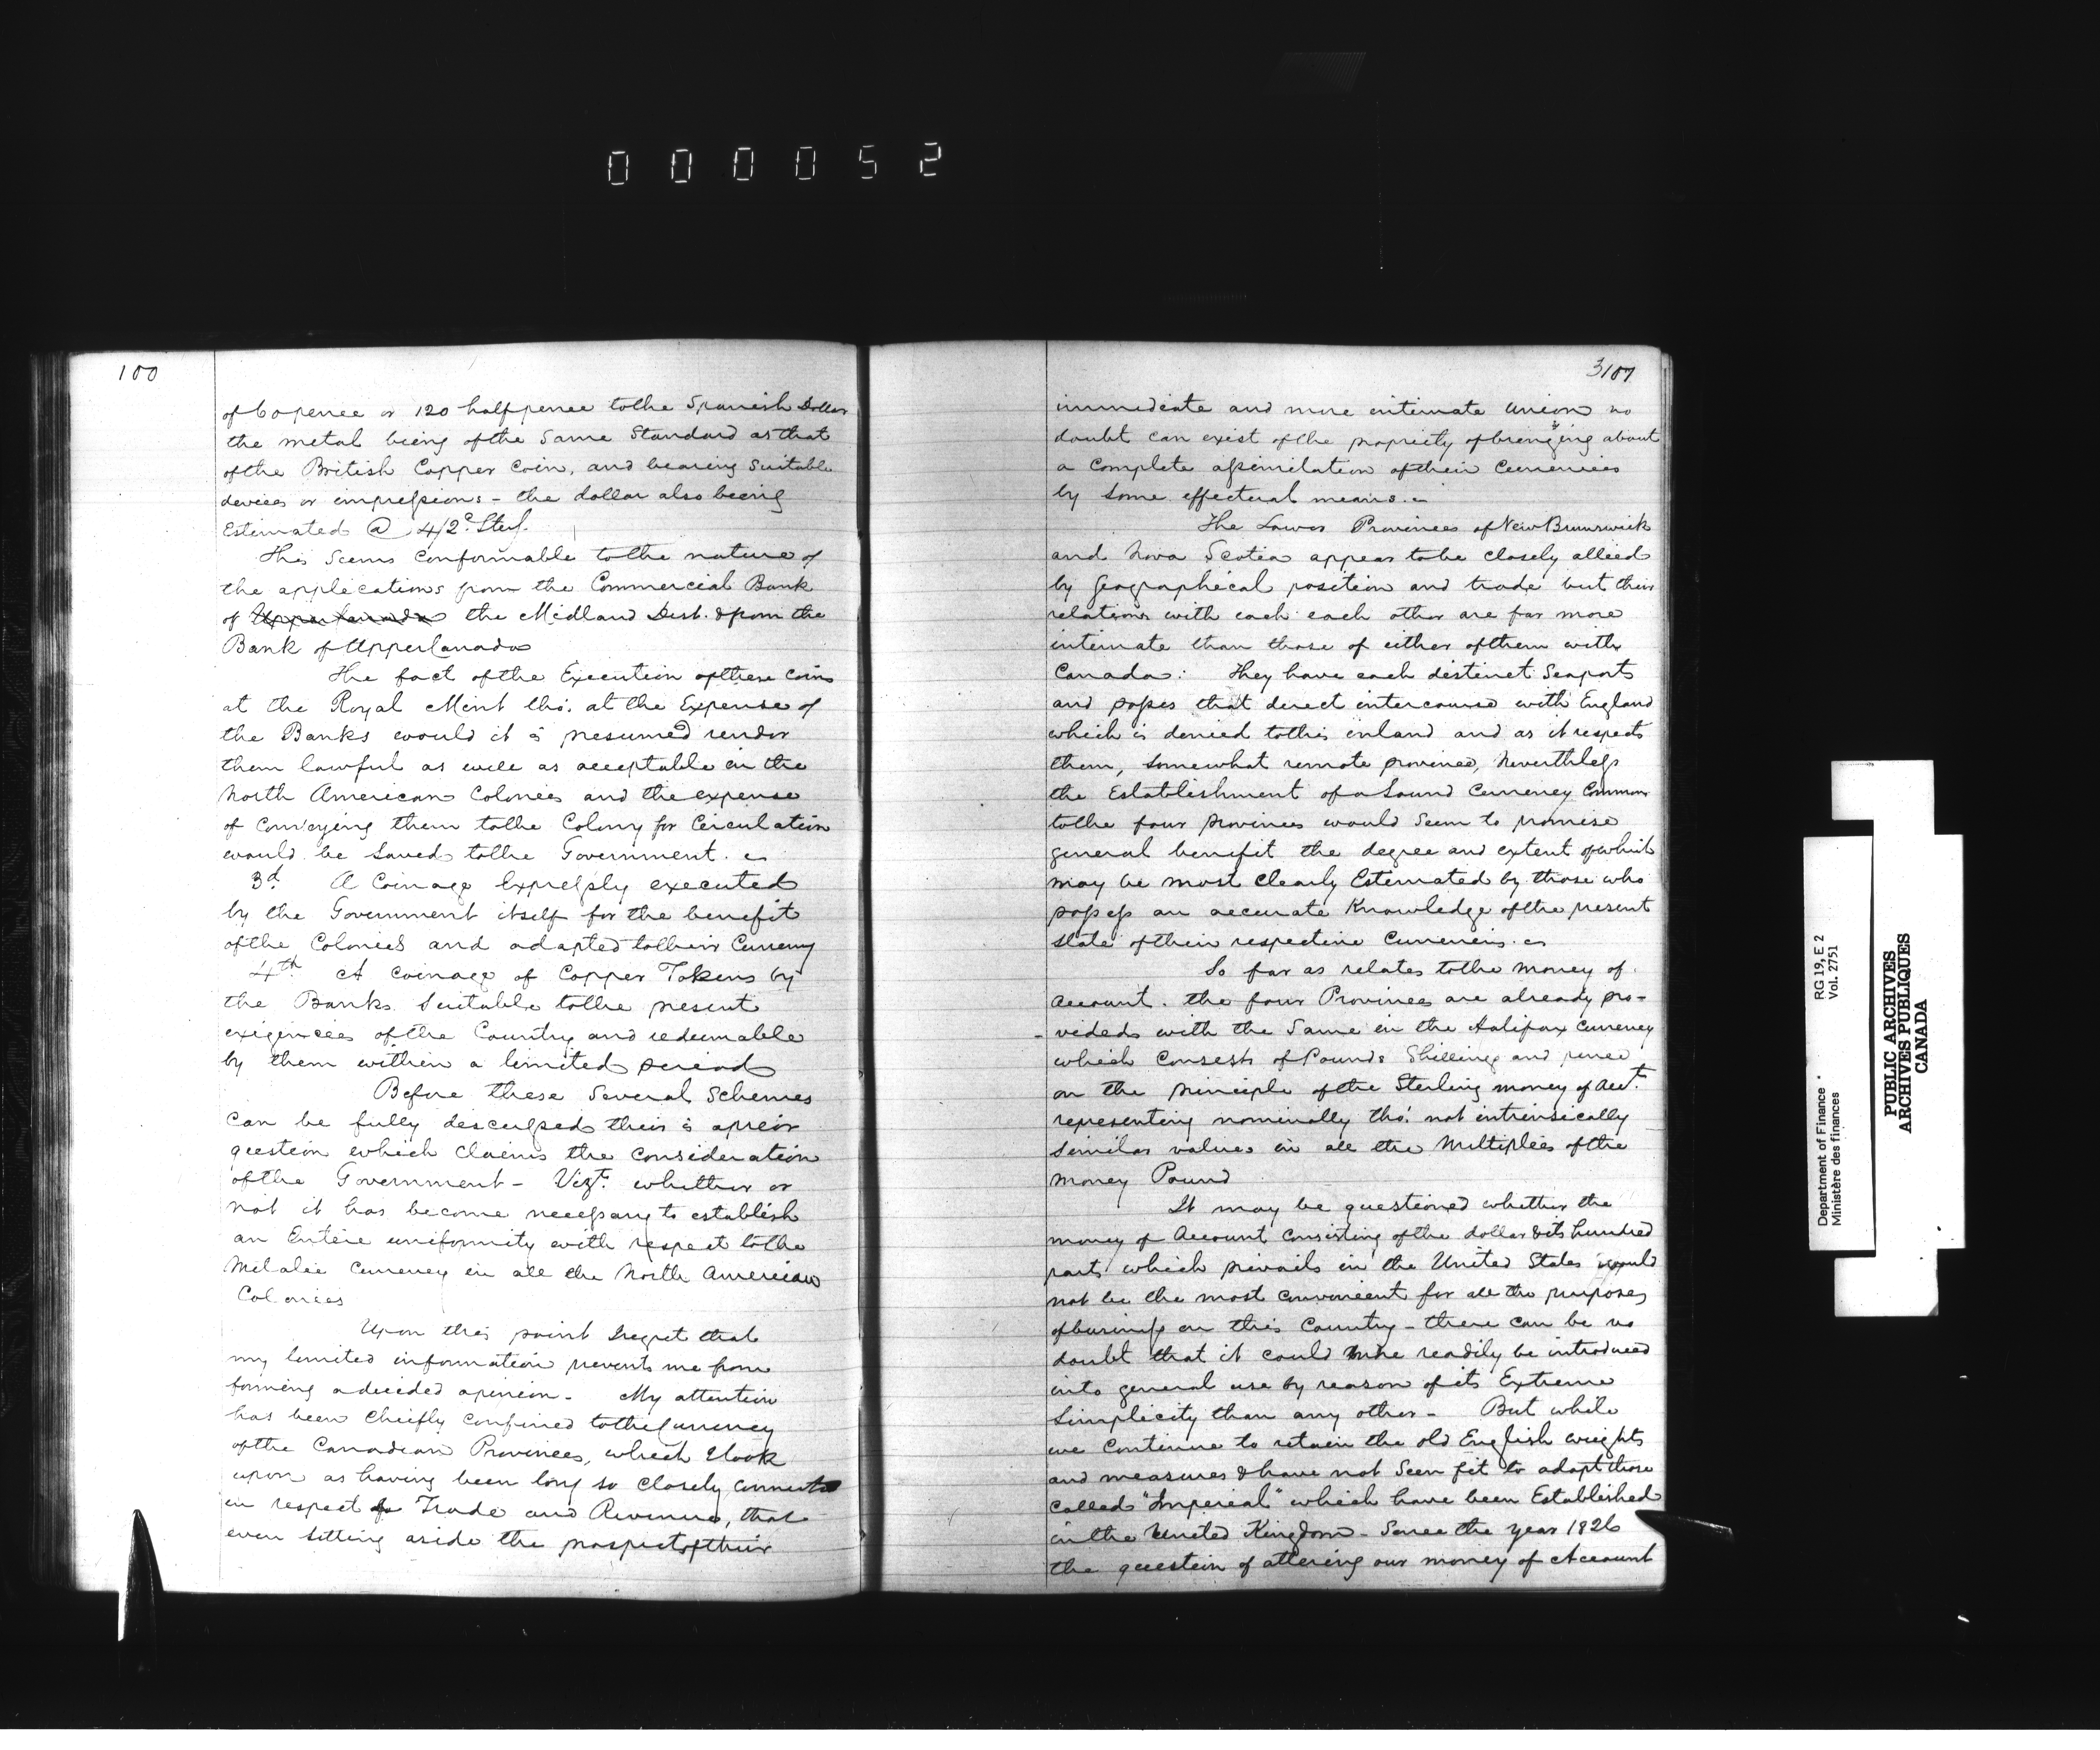 000052
100
of 60 pence or 120 halfpence to the Spanish Dollar
the metal being of the Same Standard as that
of the British Copper Coin, and bearing suitable
devices or impressions - the dollar also being
Estimated @ 4/2d. Sterl.
This Seems Conformable to the nature of
the applications from the Commercial Bank
of Upper Canada the Midland Dist. & from the
Bank of Upper Canada
The fact of the Execution of these Coins
at the Royal Mint tho'. at the Expense of
the Banks would it is presumed render
them lawful as well as acceptable in the
North American Colonies and the expense
of Conveying them to the Colony for Circulation
would be Saved to the Government.
3d. A Coinage Expressly executed
by the Government itself for the benefit
of the Colonies and adapted to their Currency
4th. A Coinage of Copper Tokens by
the Banks Suitable to the present
exigencies of the Country and redeemable
by them within a limited period
Before these Several Schemes
Can be fully discussed their is a prior
question which Claims the Consideration
of the Government - Vizt. whether or
not it has become necessary to establish
an Entire uniformity with respect to the
Metalic Currency in all the North American
Colonies
Upon this point I regret that
my limited information prevents me from
forming a decided opinion - My attention
has been Chiefly Confined to the Currency
of the Canadian Provinces, which I look
upon as having been long so Closely Connected
in respect to Trade and Revenue, that
even Setting aside the prospect of their
3107
immediate and more intimate Union no
doubt can exist of the propriety of bringing about
a Complete assimilation of their Currencies
by Some effectual means.
The Lower Provinces of New Brunswick
and Nova Scotia appear to be Closely allied
by Geographical position and trade but their
relations with each each other are far more
intimate than those of either of them with
Canada: They have each distinct Seaports
and posses that direct intercourse with England
which is denied to this inland and as it respects
them, Somewhat remote province, Neverthless
the Establishment of a Sound Currency Common
to the four provinces would Seem to promise
general benifit the degree and extent of which
may be most Clearly Estimated by those who
possess an accurate Knowledge of the present
State of their respective Currencies.
So far as relates to the Money of
Account. the four Provinces are already pro-
- vided with the Same in the Halifax Currency
which Consists of Pounds Shillings and pence
on the principle of the Sterling money of Acct.
representing nominally tho'. not intrinsically
Similar values in all the Multiples of the
Money Pound
It may be questioned whether the
money of Account Consisting of the dollar & its hundred
parts which prevails in the United States would
not be the most Convenient for all the purposes
of business on this Country - there can be no
doubt that it could more readily be introduced
into general use by reason of its Extreme
Simplicity than any other - But while
we Continue to retain the old English weights
and measures & have not Seen fit to adopt those
Called "Imperial" which have been Established
in the United Kingdom - Since the year 1826
the question of altering our money of Account
Department of Finance
Ministère des finances
RG 19, E 2
Vol. 2751
PUBLIC ARCHIVES
ARCHIVES PUBLIQUES
CANADA